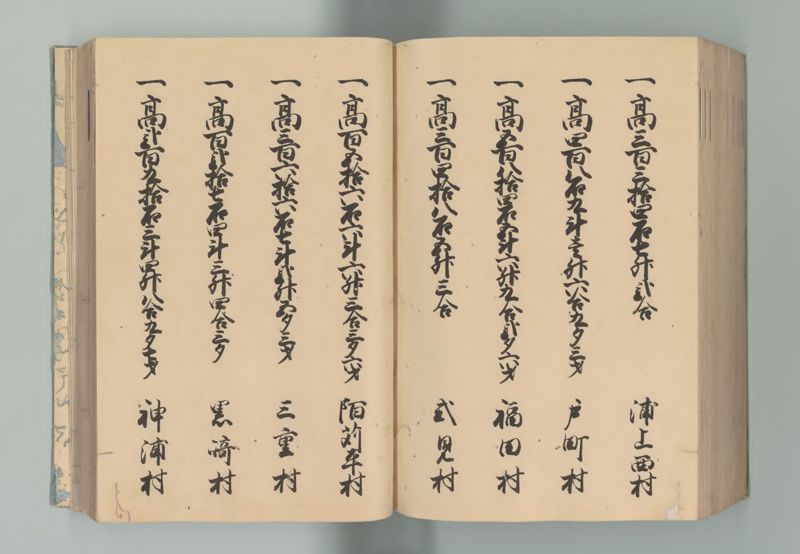 一高三百三拾四石七升弐合 浦上西村
一高四百八石九斗壱升六合九夕三才 戸町村
一高五百八拾四石五斗六升九合弐夕六才 福田村
一高三百四拾八石五升三合 式見村
一高百五拾六石六斗六升三合三夕六才 陌苅平村
一高三百六拾六石七斗弐升五夕三才 三重村
一高百弐拾七石四斗三升四合三夕 黒崎村
一高弐百九拾石三斗四升八合九夕七才 神浦村